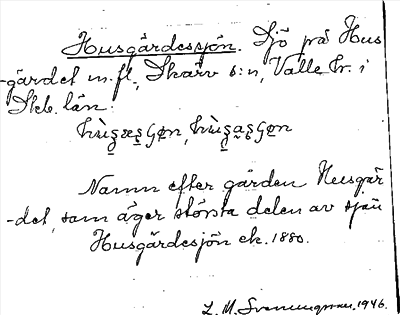 Husgärdessjön. Sjö på Hus
-gärdet m.fl., Skärv s:n, Valle hr. i
Skb. län.
Namn efter gården Husgär
-det, som äger största delen av sjön
Husgärdesjön ek. 1880.
L. M. Svenungsson. 1946.